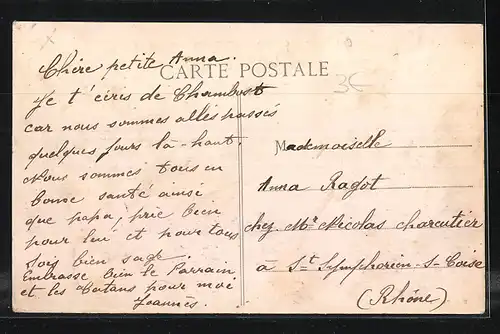 Chère petite Anna.
CARTE POSTALE
3€
Je t'écris de Chambost
car nous sommes allés passés
quelques jours la-haut.
Nous sommes tous en
bonne santé ainsi
que papa; prie bien
pour lui et pour tous
sois bien sage.
Embrasse bien le Parrain
et les Tatans pour moi
Joannès.
Mademoiselle
Anna Ragot
chez Mr Nicolas charcutier
à St Symphorien-s-Coise
(Rhône)